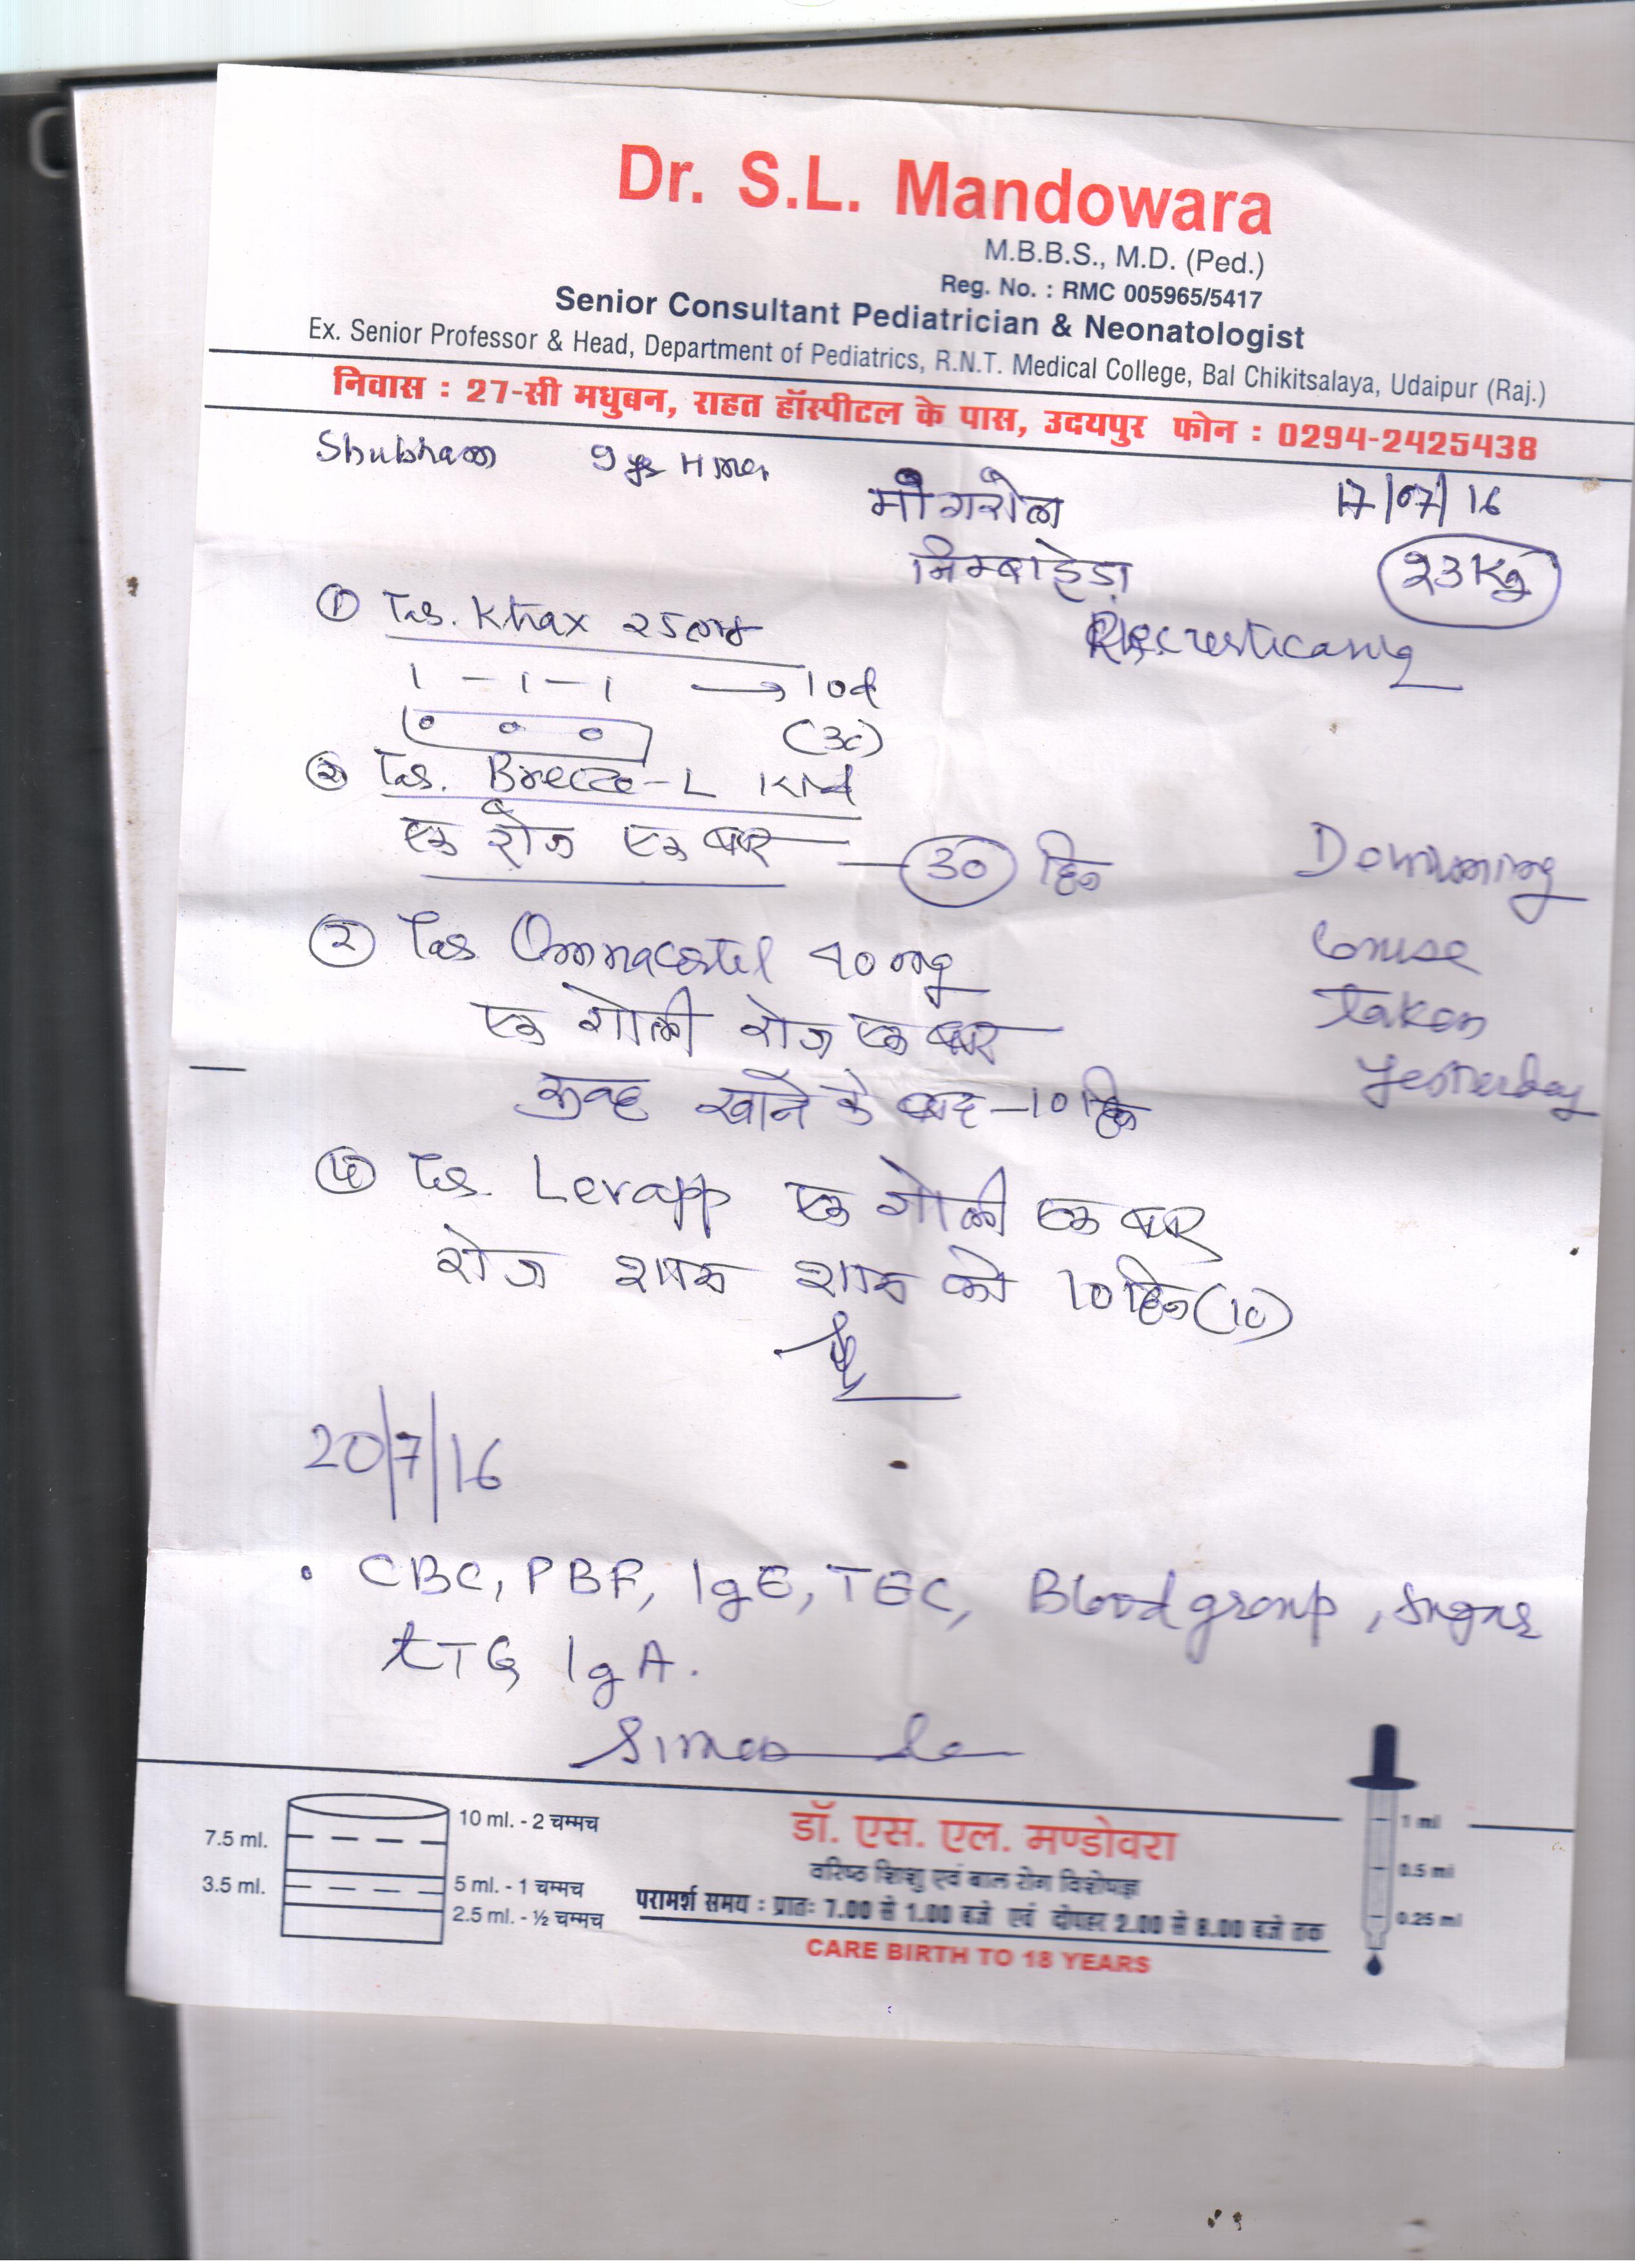 Dr. S.L. Mandowara
M.B.B.S., M.D. (Ped.)
Reg. No. : RMC 005965/5417
Senior Consultant Pediatrician & Neonatologist
Ex. Senior Professor & Head, Department of Pediatrics, R.N.T. Medical College, Bal Chikitsalaya, Udaipur (Raj.)
निवास : 27-सी मधुबन, राहत हॉस्पीटल के पास, उदयपुर फोन : 0294-2425438
Shubham 9 yr
17/07/16
निम्बाहेड़ा
23 Kg
① Tab. 25mg
1 - 1 - 1 → 10d
② Tab. Breeze-L Kid
एक रोज एक बार — 30 दिन
Deworming
Course
taken
yesterday
Tab Omnacortil 40 mg
एक गोली रोज एक बार
सुबह खाने के बाद - 10 दिन
④ Tab. एक गोली एक बार
रोज शाम शाम को 10 दिन (10)
20/7/16
• CBC, PBF, IgE, TEC, Blood group, Sugar
tTG IgA.
10 ml. - 2 चम्मच
7.5 ml.
5 ml. - 1 चम्मच
3.5 ml.
2.5 ml. - ½ चम्मच
डॉ. एस. एल. मण्डोवरा
वरिष्ठ शिशु एवं बाल रोग विशेषज्ञ
परामर्श समय : प्रातः 7.00 से 1.00 बजे एवं दोपहर 2.00 से 8.00 बजे तक
CARE BIRTH TO 18 YEARS
1 ml
0.5 ml
0.25 ml